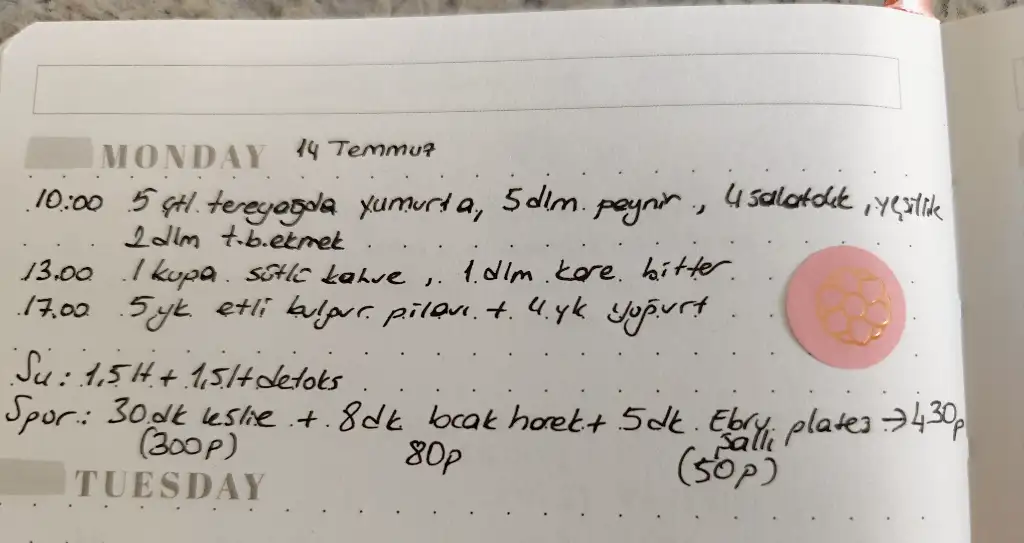 MONDAY 14 Temmuz
10:00 5 çtl. tereyağda yumurta, 5 dlm. peynir, 4 salatalık, yeşillik
2 dlm t.b.ekmek
13.00 1 kupa sütlü kahve, 1 dlm. kare bitter
17.00 5 yk etli bulgur pilavı + 4 yk yoğurt
Su: 1,5 lt + 1,5 lt detoks
Spor: 30 dk leslie + 8 dk bacak hareket + 5 dk. Ebru Şallı plates → 430p
(300p) 80p (50p)
TUESDAY